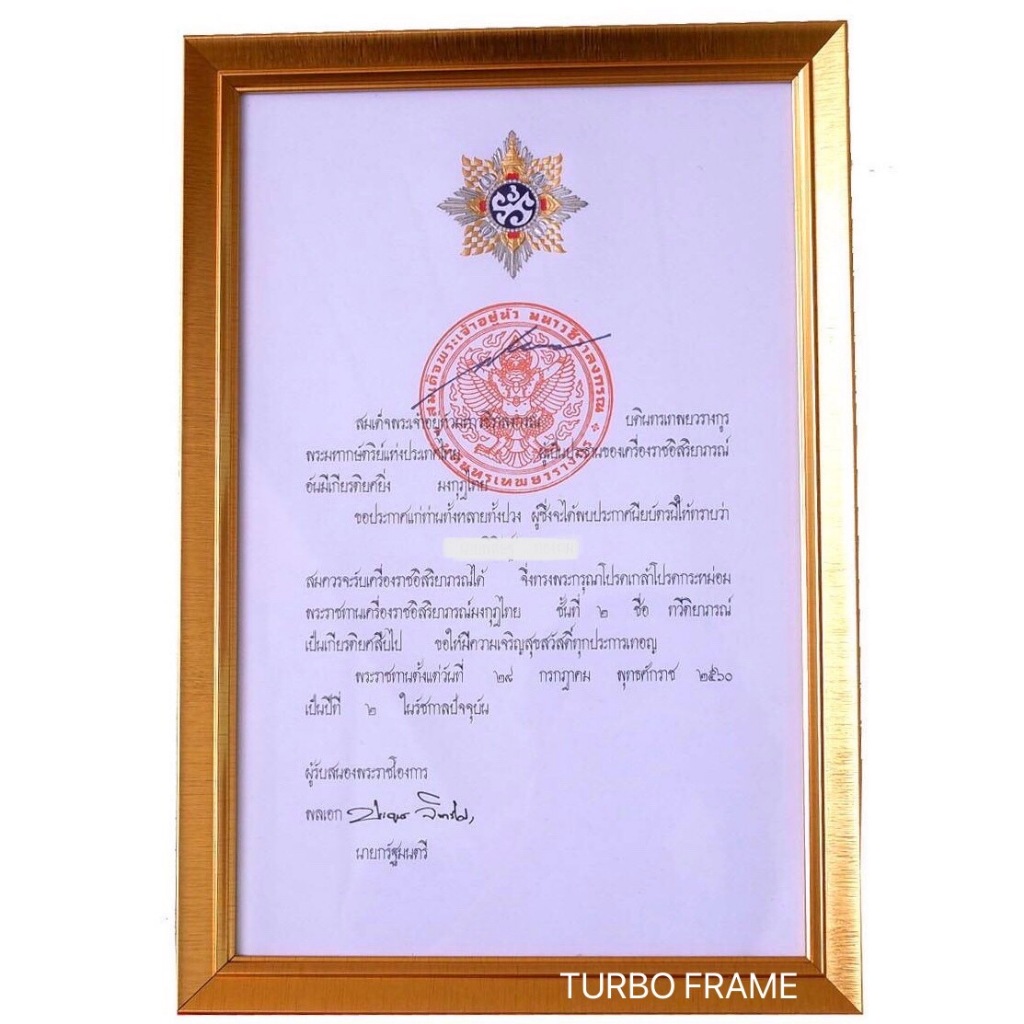 สมเด็จพระเจ้าอยู่หัว มหาวชิราลงกรณ
บดินทรเทพยวรางกูร
สมเด็จพระเจ้าอยู่หัวมหาวชิราลงกรณ บดินทรเทพยวรางกูร
พระมหากษัตริย์แห่งประเทศไทย ผู้เป็นประธานของเครื่องราชอิสริยาภรณ์
อันมีเกียรติยศยิ่ง มงกุฎไทย
ขอประกาศแก่ท่านทั้งหลายทั้งปวง ผู้ซึ่งจะได้พบประกาศนียบัตรนี้ให้ทราบว่า
สมควรจะรับเครื่องราชอิสริยาภรณ์ได้ จึ่งทรงพระกรุณาโปรดเกล้าโปรดกระหม่อม
พระราชทานเครื่องราชอิสริยาภรณ์มงกุฎไทย ชั้นที่ ๒ ชื่อ ทวีติยาภรณ์
เป็นเกียรติยศสืบไป ขอให้มีความเจริญสุขสวัสดิ์ทุกประการเทอญ
พระราชทานตั้งแต่วันที่ ๒๘ กรกฎาคม พุทธศักราช ๒๕๖๐
เป็นปีที่ ๒ ในรัชกาลปัจจุบัน
ผู้รับสนองพระราชโองการ
พลเอก
นายกรัฐมนตรี
TURBO FRAME